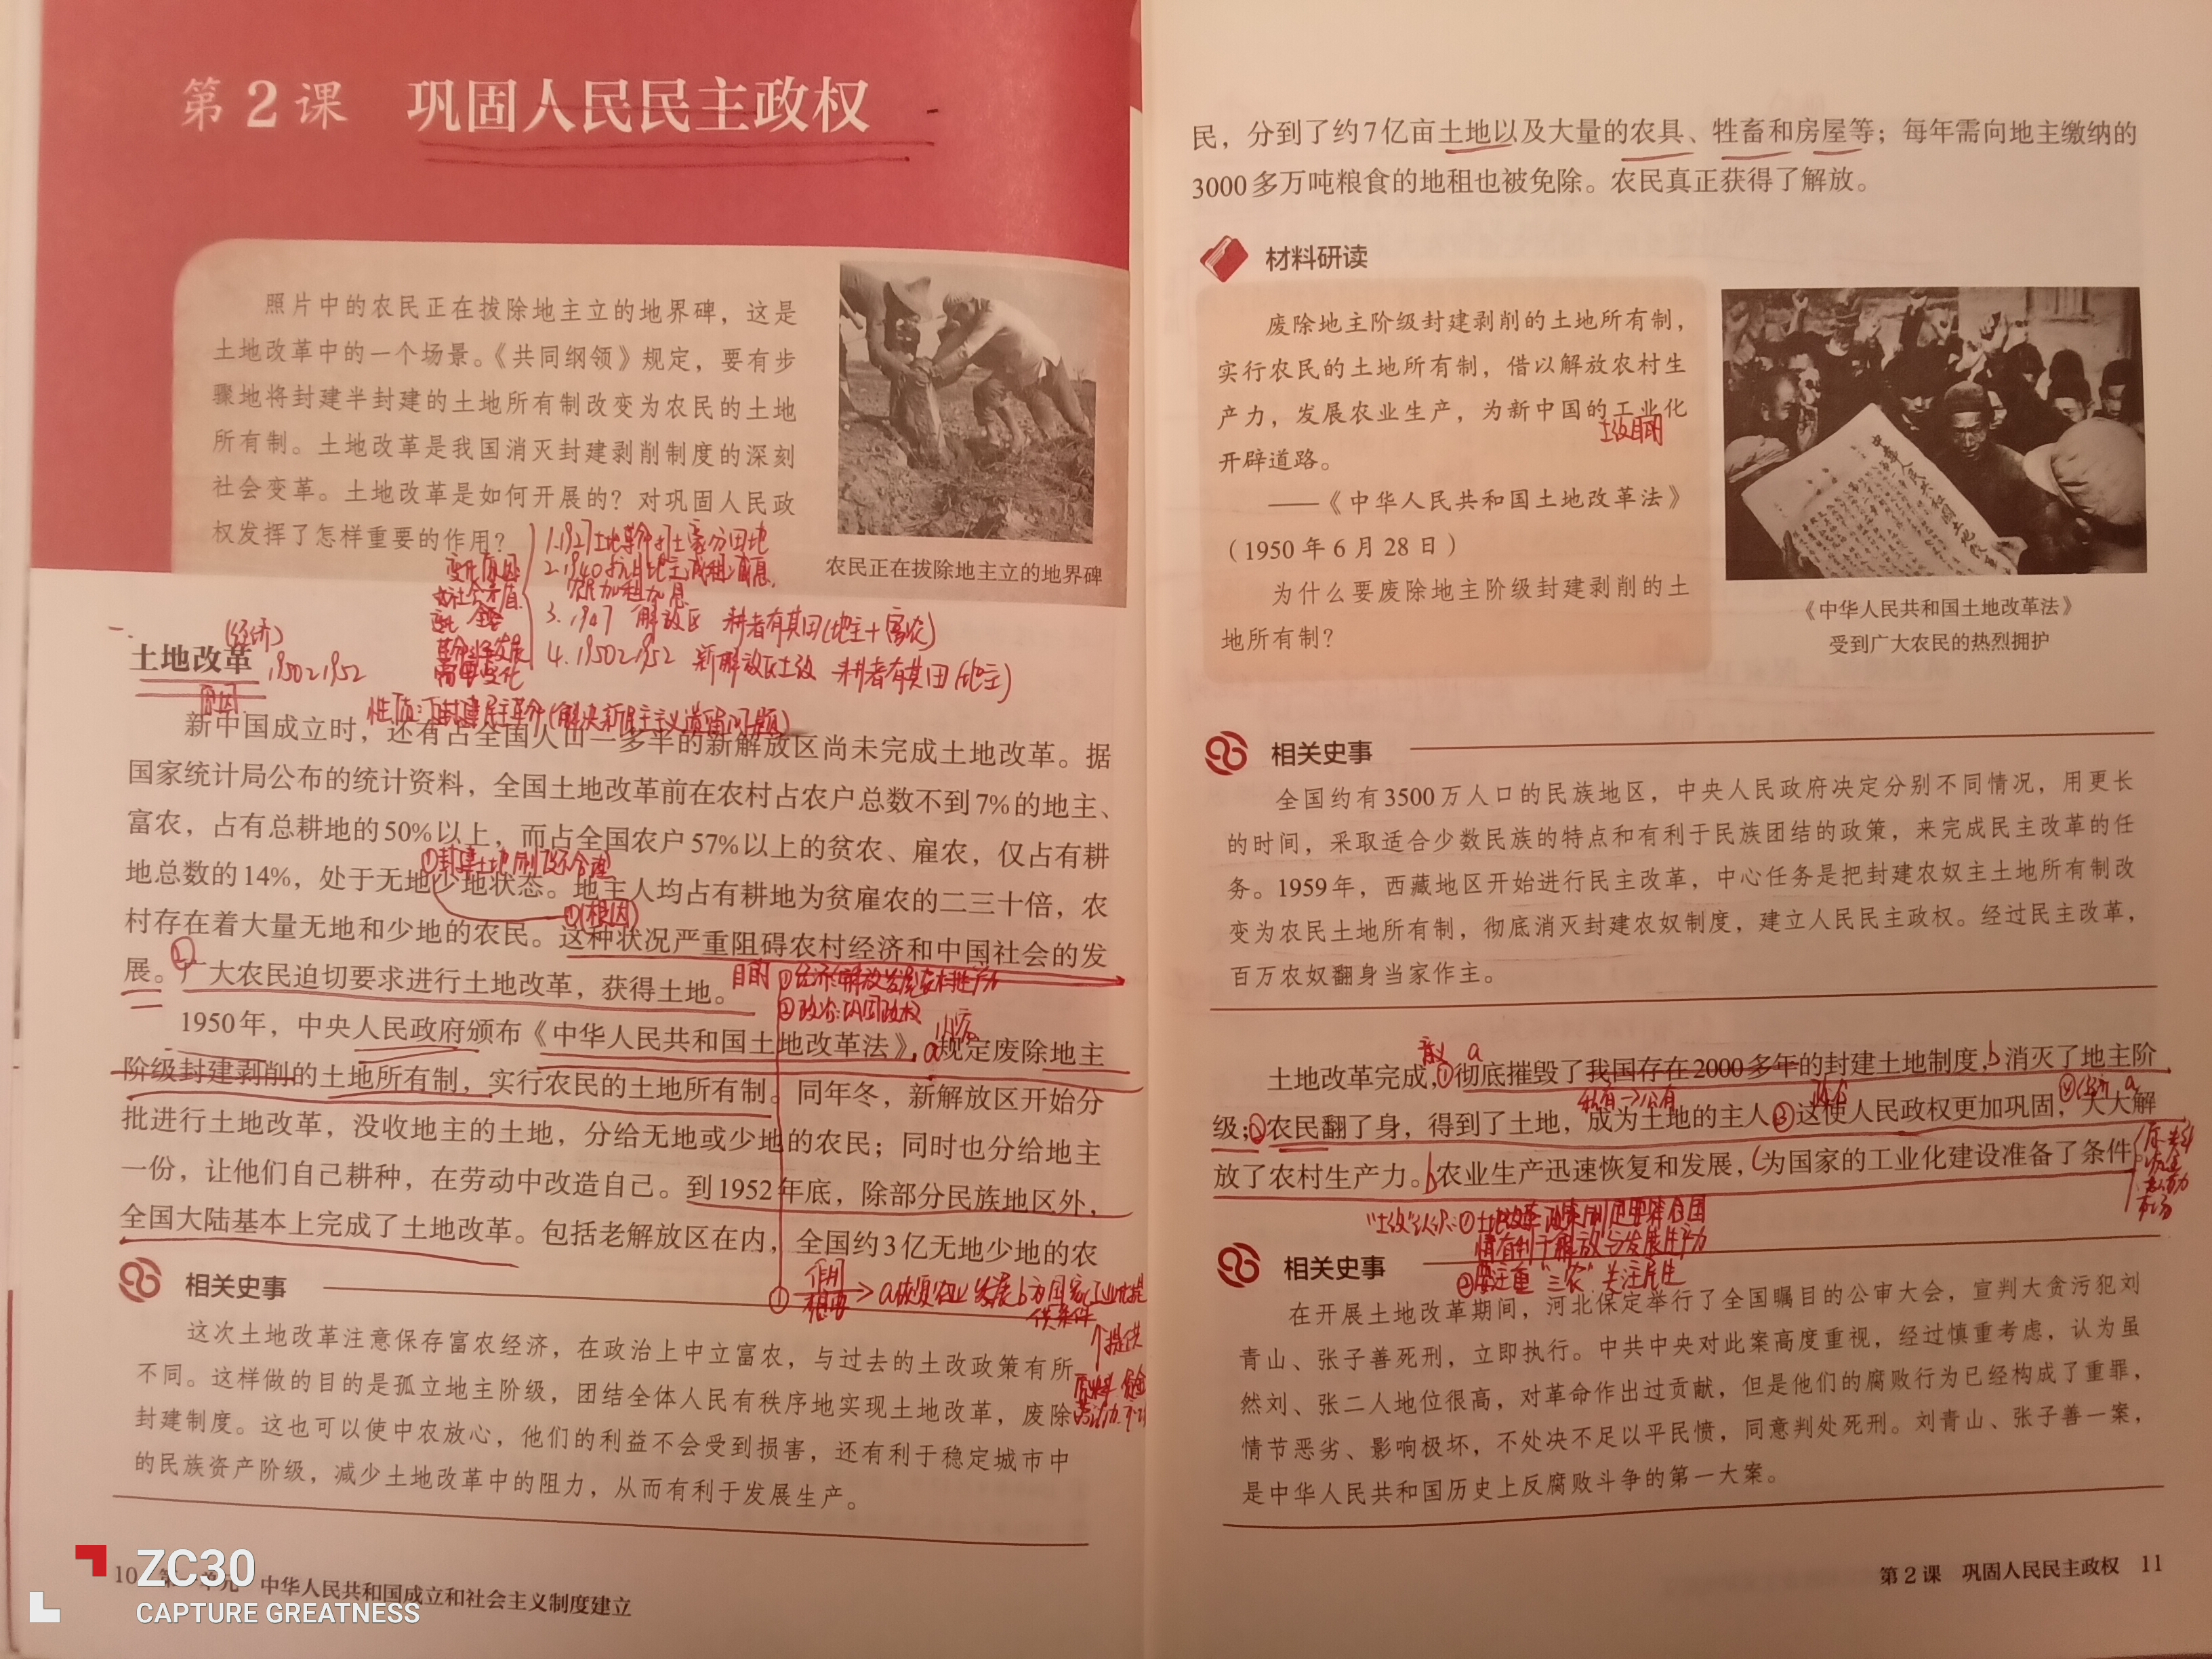 第2课 巩固人民民主政权
照片中的农民正在拔除地主立的地界碑，这是
土地改革中的一个场景。《共同纲领》规定，要有步
骤地将封建半封建的土地所有制改变为农民的土地
所有制。土地改革是我国消灭封建剥削制度的深刻
社会变革。土地改革是如何开展的？对巩固人民政
权发挥了怎样重要的作用？
农民正在拔除地主立的地界碑
1.1927土地革命打土豪分田地
2.1940抗日地主减租减息
农民加租加息
3.1947 解放区 耕者有其田(地主+富农)
4.1950~1952 新解放区土改 耕者有其田(地主)
变化原因
社会矛盾
变化
革命形势发展
需要变化
一.
(经济)
土地改革 1950~1952
原因
性质:反封建民主革命(解决新民主主义遗留问题)
新中国成立时，还有占全国人口一多半的新解放区尚未完成土地改革。据
国家统计局公布的统计资料，全国土地改革前在农村占农户总数不到7%的地主、
富农，占有总耕地的50%以上，而占全国农户57%以上的贫农、雇农，仅占有耕
①封建土地制度不合理
地总数的14%，处于无地少地状态。地主人均占有耕地为贫雇农的二三十倍，农
①(根因)
村存在着大量无地和少地的农民。这种状况严重阻碍农村经济和中国社会的发
展。②广大农民迫切要求进行土地改革，获得土地。
目的 ①经济:解放发展农村生产力
②政治:巩固政权
1950年，中央人民政府颁布《中华人民共和国土地改革法》，a规定废除地主
内容
阶级封建剥削的土地所有制，实行农民的土地所有制。同年冬，新解放区开始分
批进行土地改革，没收地主的土地，分给无地或少地的农民；同时也分给地主
一份，让他们自己耕种，在劳动中改造自己。到1952年底，除部分民族地区外，
全国大陆基本上完成了土地改革。包括老解放区在内，全国约3亿无地少地的农
①作用
a恢复农业 发展 b为国家工业化提
供条件
提供
原料 资金
劳动力
相关史事
这次土地改革注意保存富农经济，在政治上中立富农，与过去的土改政策有所
不同。这样做的目的是孤立地主阶级，团结全体人民有秩序地实现土地改革，废除
封建制度。这也可以使中农放心，他们的利益不会受到损害，还有利于稳定城市中
的民族资产阶级，减少土地改革中的阻力，从而有利于发展生产。
10 第一单元 中华人民共和国成立和社会主义制度建立
ZC30
CAPTURE GREATNESS
民，分到了约7亿亩土地以及大量的农具、牲畜和房屋等；每年需向地主缴纳的
3000多万吨粮食的地租也被免除。农民真正获得了解放。
材料研读
废除地主阶级封建剥削的土地所有制，
实行农民的土地所有制，借以解放农村生
产力，发展农业生产，为新中国的工业化
土改目的
开辟道路。
——《中华人民共和国土地改革法》
（1950年6月28日）
为什么要废除地主阶级封建剥削的土
地所有制？
《中华人民共和国土地改革法》
受到广大农民的热烈拥护
相关史事
全国约有3500万人口的民族地区，中央人民政府决定分别不同情况，用更长
的时间，采取适合少数民族的特点和有利于民族团结的政策，来完成民主改革的任
务。1959年，西藏地区开始进行民主改革，中心任务是把封建农奴主土地所有制改
变为农民土地所有制，彻底消灭封建农奴制度，建立人民民主政权。经过民主改革，
百万农奴翻身当家作主。
意义 a
土地改革完成，①彻底摧毁了我国存在2000多年的封建土地制度，b消灭了地主阶
私有→公有 政治 ④经济 a
级；②农民翻了身，得到了土地，成为土地的主人③这使人民政权更加巩固，大大解
放了农村生产力。b农业生产迅速恢复和发展，c为国家的工业化建设准备了条件。
原料
资金
劳动力
市场
"土改"认识:①土地改革政策制定要符合国
情有利于解放与发展生产力
②要注重"三农"关注民生
相关史事
在开展土地改革期间，河北保定举行了全国瞩目的公审大会，宣判大贪污犯刘
青山、张子善死刑，立即执行。中共中央对此案高度重视，经过慎重考虑，认为虽
然刘、张二人地位很高，对革命作出过贡献，但是他们的腐败行为已经构成了重罪，
情节恶劣、影响极坏，不处决不足以平民愤，同意判处死刑。刘青山、张子善一案，
是中华人民共和国历史上反腐败斗争的第一大案。
第2课 巩固人民民主政权 11